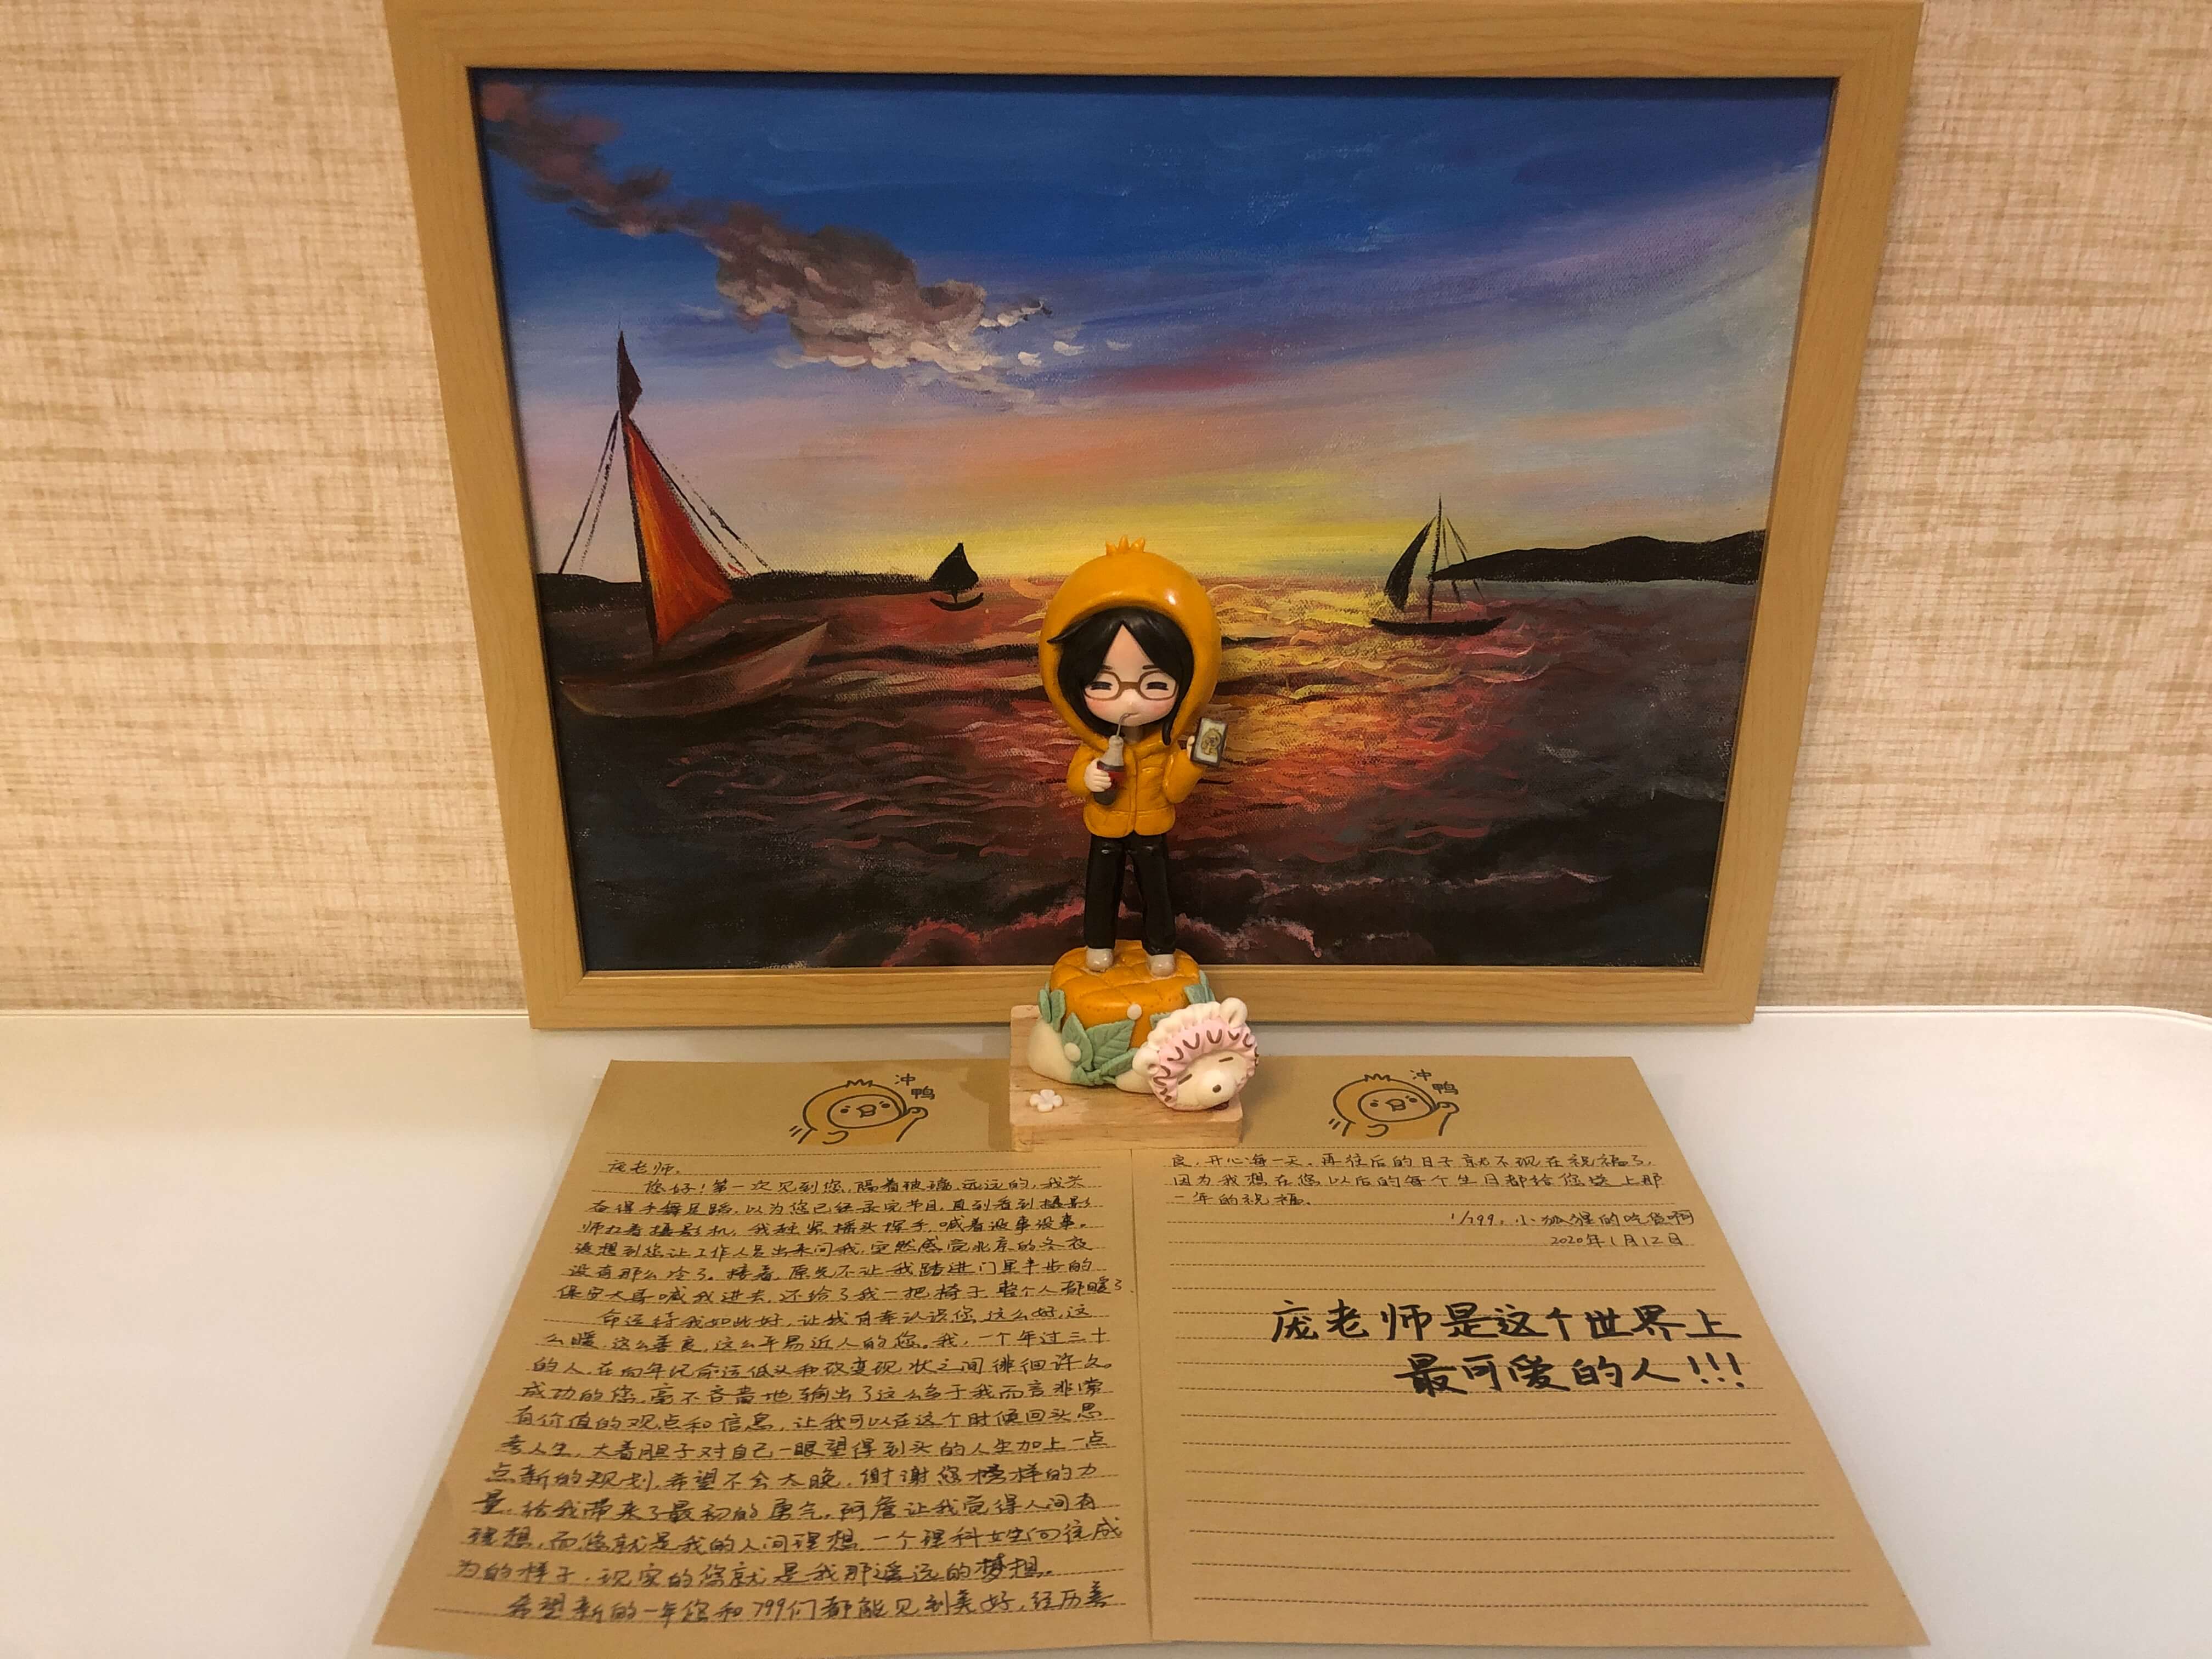 冲鸭
庞老师，
您好！第一次见到您，隔着玻璃，远远的，我兴
奋得手舞足蹈，以为您已经录完节目，直到看到摄影
师扛着摄影机，我赶紧摇头摆手，喊着没事没事。
没想到您让工作人员出来问我，突然感觉北京的冬夜
没有那么冷了。接着，原先不让我踏进门里半步的
保安大哥喊我进去，还给了我一把椅子，整个人都暖了
命运待我如此好，让我有幸认识您，这么好，这
么暖，这么善良，这么平易近人的您。我，一个年过三十
的人，在向年纪命运低头和改变现状之间徘徊许久。
成功的您，毫不吝啬地输出了这么多于我而言非常
有价值的观点和信息，让我可以在这个时候回头思
考人生，大着胆子对自己一眼望得到头的人生加上一点
点新的规划，希望不会太晚。谢谢您榜样的力
量，给我带来了最初的勇气。阿詹让我觉得人间有
理想，而您就是我的人间理想，一个理科女生向往成
为的样子，现实的您就是我那遥远的梦想。
希望新的一年您和799们都能见到美好，经历善
冲鸭
良，开心每一天。再往后的日子就不现在祝福了，
因为我想在您以后的每个生日都给您送上那
一年的祝福。
1/799，小狐狸的吃货啊
2020年1月12日
庞老师是这个世界上
最可爱的人！！！